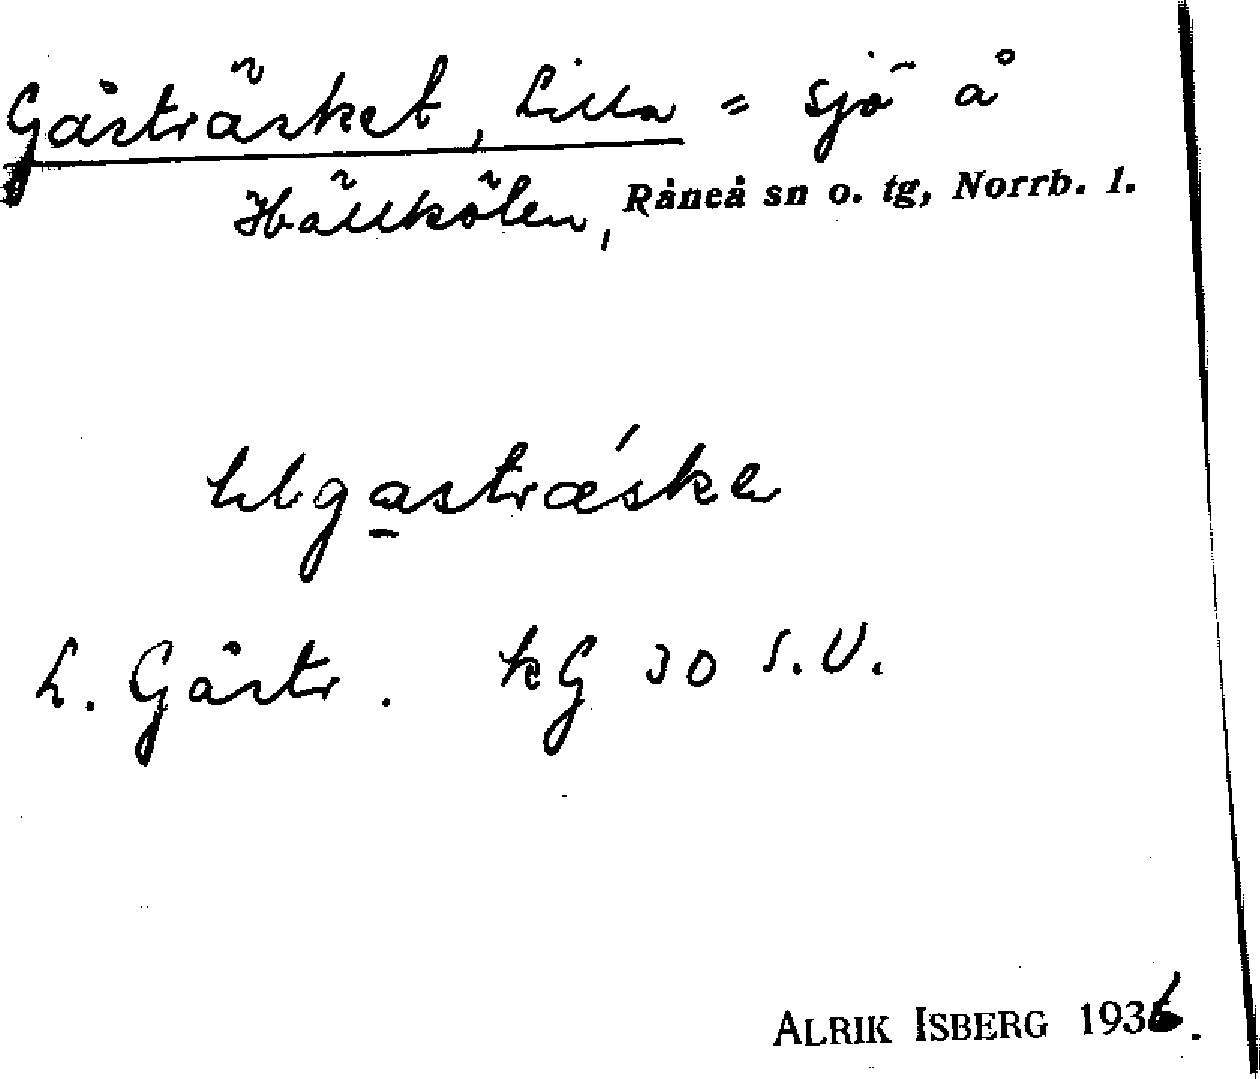 Gåsträsket, Lilla = sjö å
Hällkölen, Råneå sn o. tg, Norrb. l.
lilgastræ´ske
L. Gåstr. kG 30 S.V.
ALRIK ISBERG 1936.